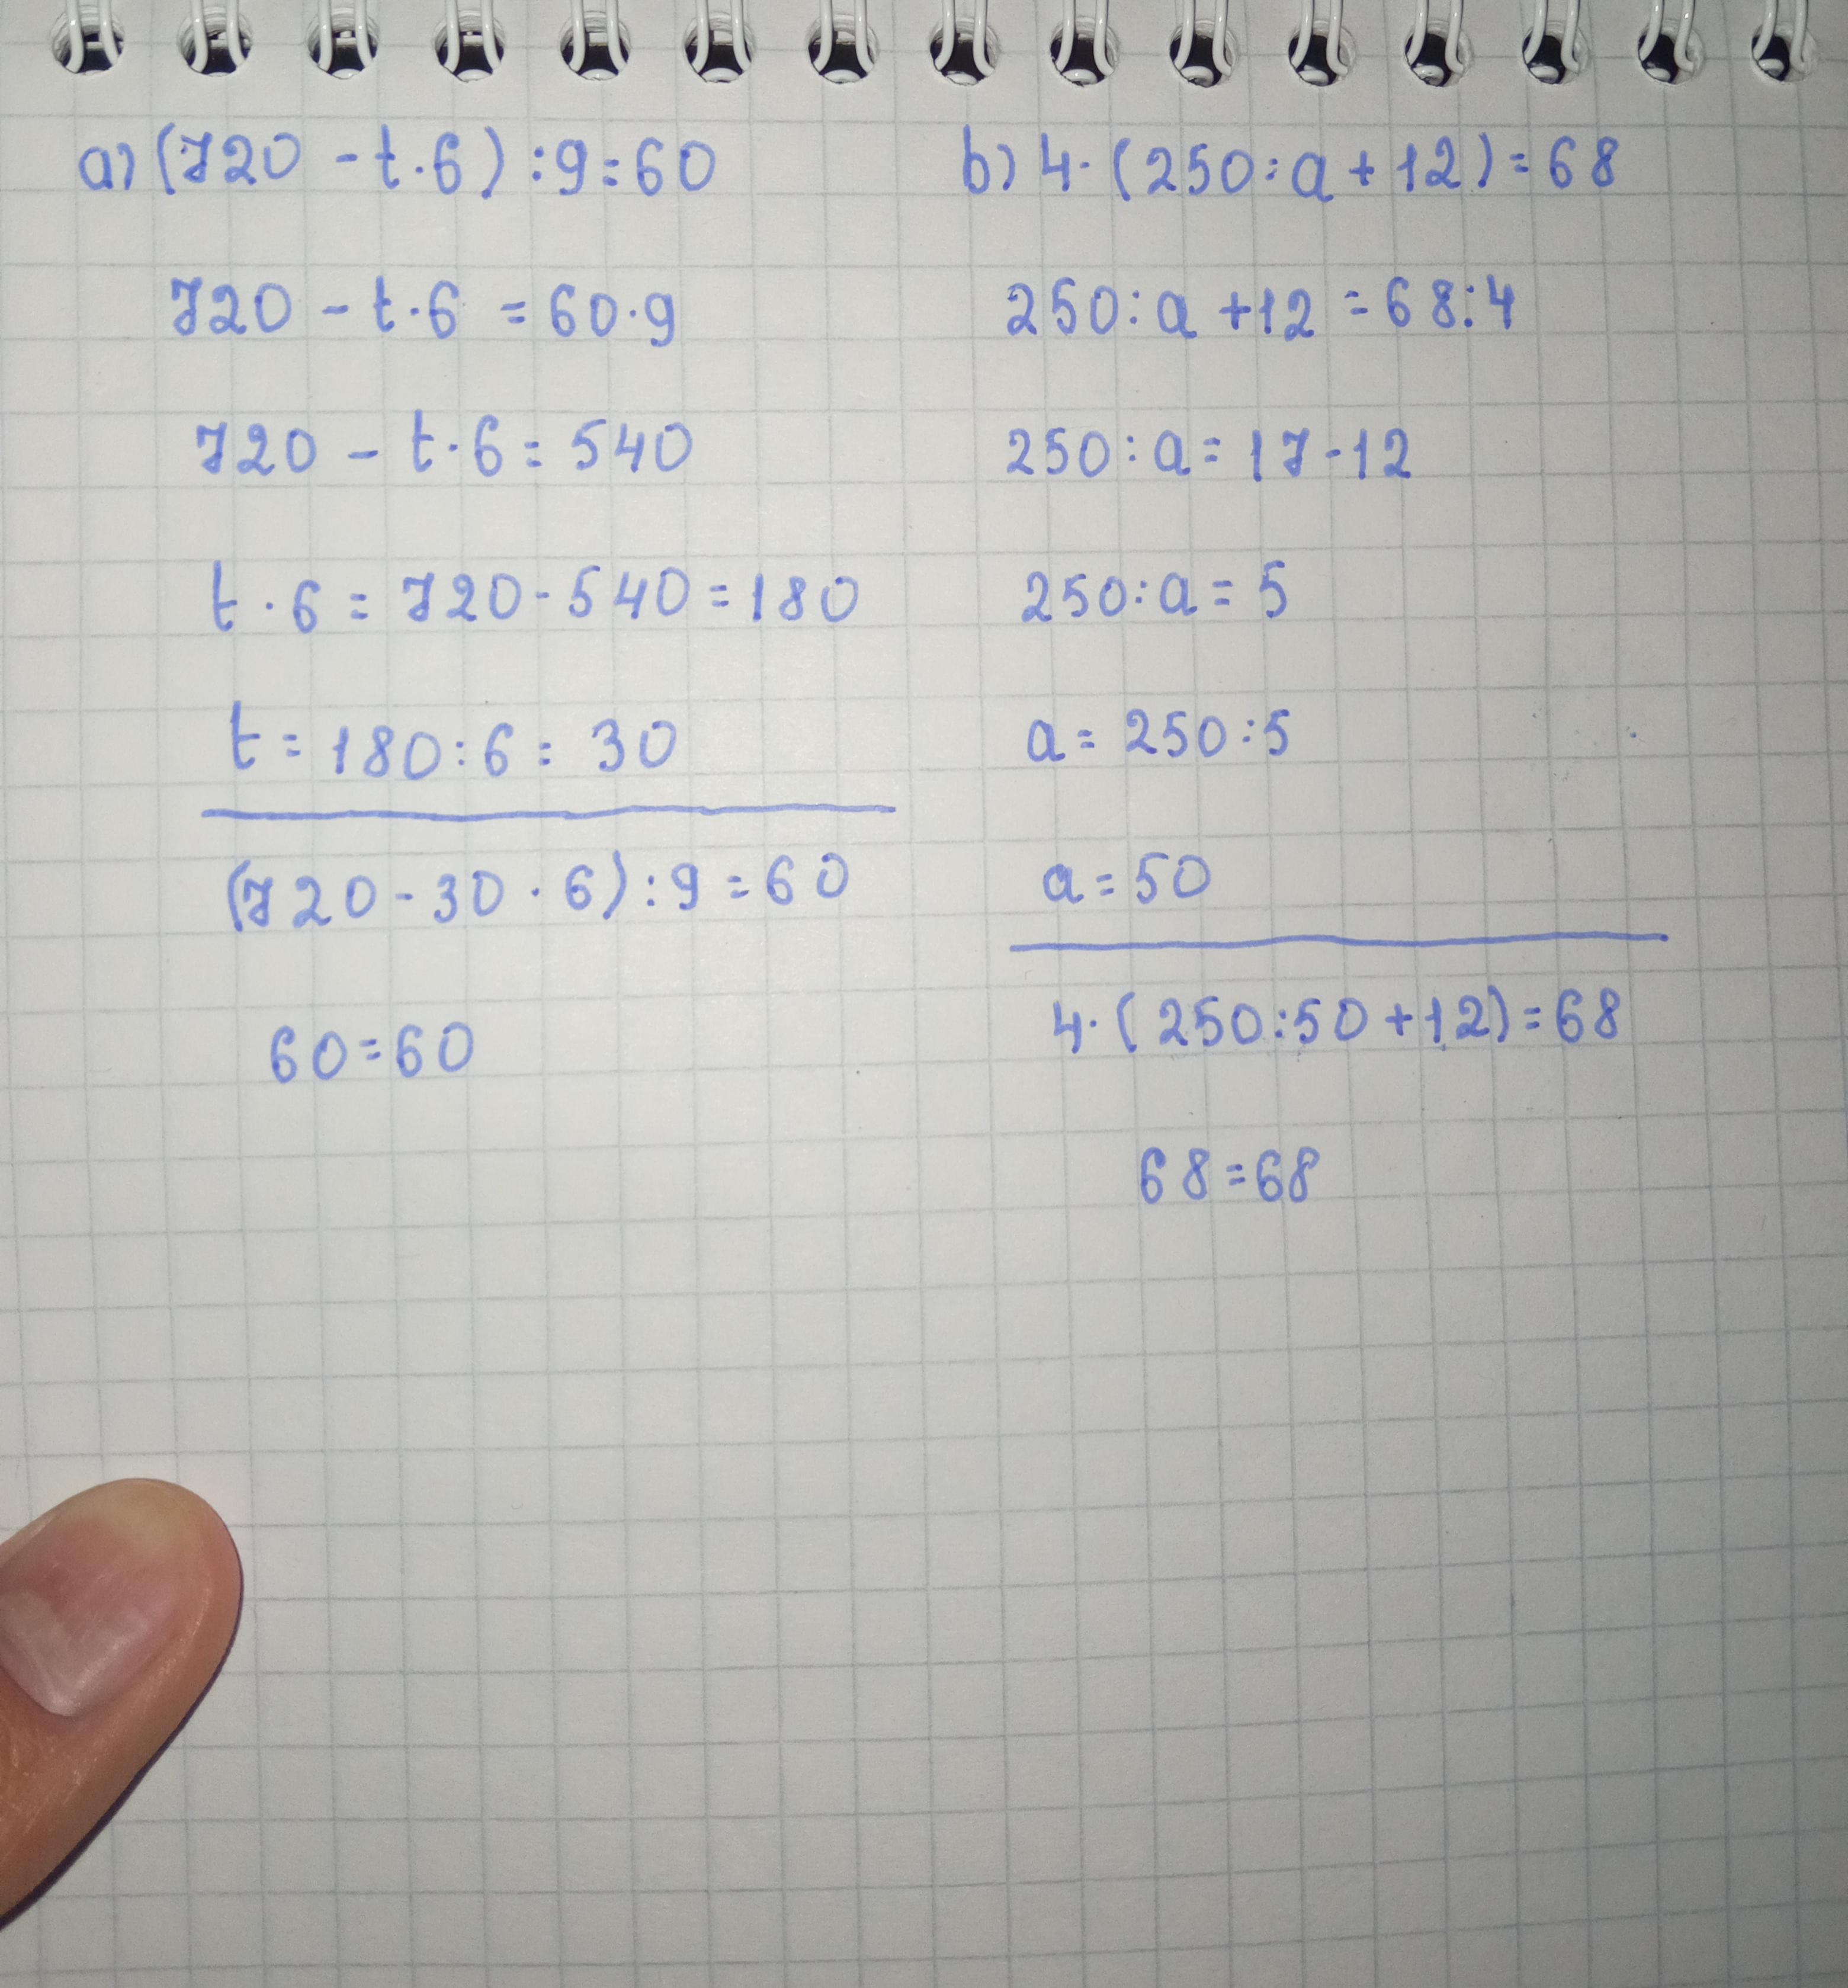 a) (720 - t·6) : 9 = 60
720 - t·6 = 60·9
720 - t·6 = 540
t·6 = 720 - 540 = 180
t = 180 : 6 = 30
(720 - 30·6) : 9 = 60
60 = 60
b) 4·(250 : a + 12) = 68
250 : a + 12 = 68 : 4
250 : a = 17 - 12
250 : a = 5
a = 250 : 5
a = 50
4·(250 : 50 + 12) = 68
68 = 68